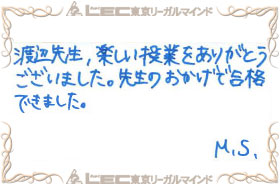 LEC東京リーガルマインド
渡辺先生,楽しい授業をありがとう
ございました。先生のおかげで合格
できました。
M.S.
LEC東京リーガルマインド